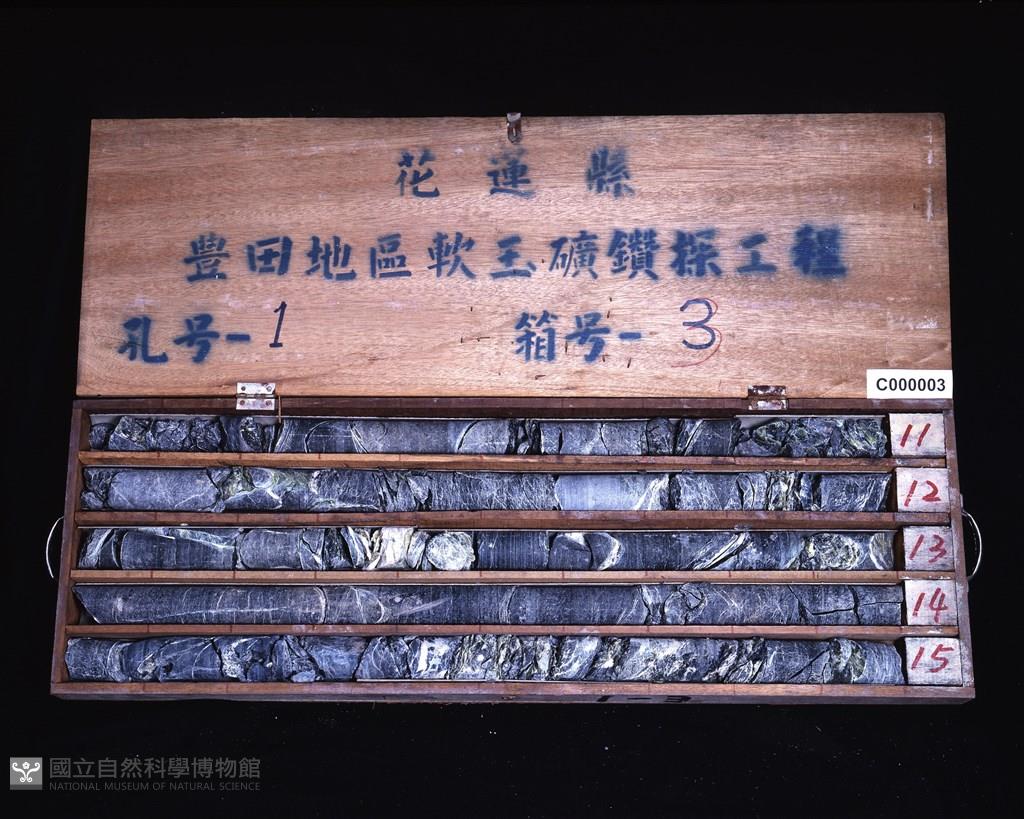 花蓮縣
豐田地區軟玉礦鑽探工程
孔号-1 箱号-3
C000003
11
12
13
14
15
國立自然科學博物館
NATIONAL MUSEUM OF NATURAL SCIENCE